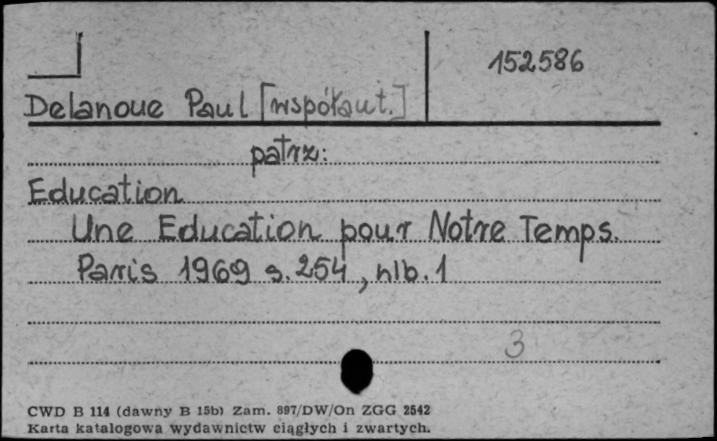 152586
Delanoue Paul [współaut.]
patrz:
Education
Une Education pour Notre Temps.
Paris 1969 s. 254, nlb. 1
3
CWD B 114 (dawny B 15b) Zam. 897/DW/On ZGG 2542
Karta katalogowa wydawnictw ciągłych i zwartych.